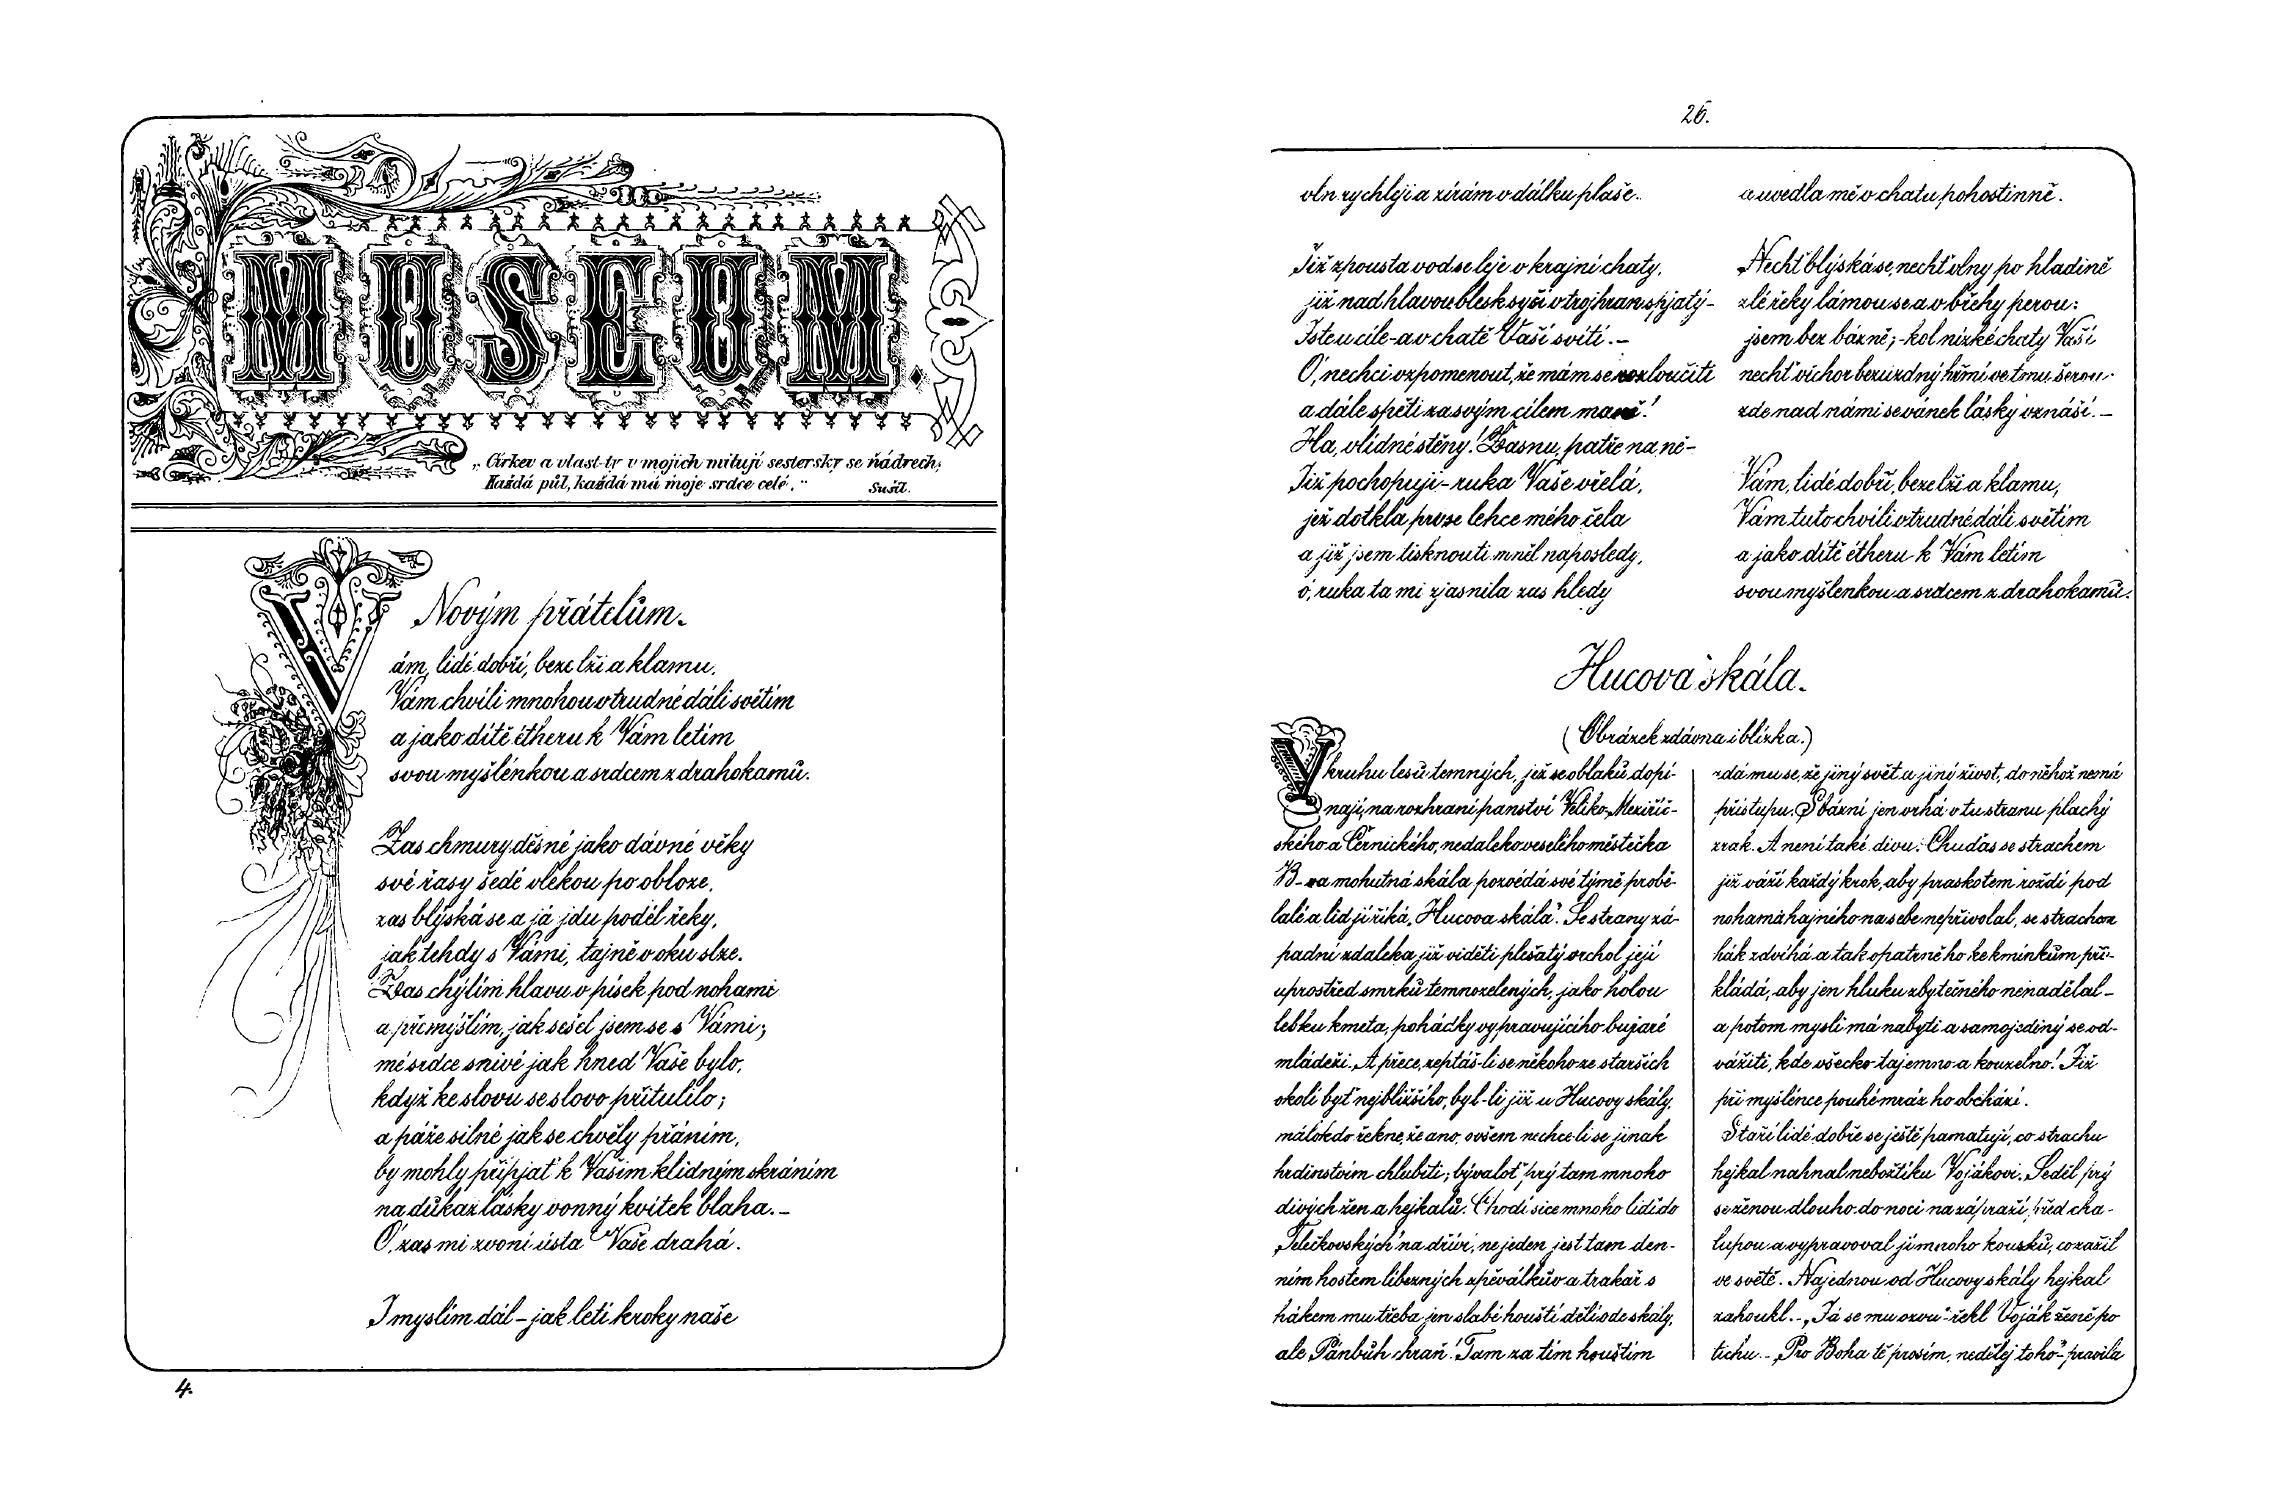 MUSEUM.
„Církev a vlast ty v mojích milují sestersky se ňádrech;
Každá půl, každá má moje srdce celé.“ Sušil.
Novým přátelům.
Vám, lidé dobří, beze lži a klamu,
Vám chvíli mnohou v trudné dáli světím
a jako dítě étheru k Vám letím
svou myšlénkou a srdcem z drahokamů.
Zas chmury děsné jako dávné věky
své řasy šedé vlékou po obloze,
zas blýská se a já jdu podél řeky,
jak tehdy s Vámi, tajně v oku slze.
Zas chýlím hlavu v písek pod nohami
a přemýšlím, jak sešel jsem se s Vámi;
mé srdce snivé jak hned Vaše bylo,
když ke slovu se slovo přitulilo;
a páže silné jak se chvěly přáním,
by mohly připjať k Vašim klidným skráním
na důkaz lásky vonný kvítek blaha. –
Ó, zas mi zvoní ústa Vaše drahá.
I myslím dál – jak letí kroky naše
4.
26.
vln rychleji a zírám v dálku plaše..
Již zpousta vod se lije v krajní chaty,
již nad hlavou blesk syčí v trojhran spjatý –
Jste u cíle – a v chatě Vaší svítí. –
Ó, nechci vzpomenout, že mám se rozloučiti
a dále spěti za svým cílem maně!
Ha, vlídné stěny! Žasnu, patře na ně –
Již pochopuji – ruka Vaše vřelá,
jež dotkla prvse lehce mého čela
a již jsem tisknouti mněl naposledy,
ó, ruka ta mi zjasnila zas hledy
a uvedla mě v chatu pohostinně.
Nechť blýská se, nechť vlny po hladině
zlé řeky lámou se a v břehy perou:
jsem bez bázně; – kol nízké chaty Vaší
nechť vichor bezuzdný hřmí ve tmu šerou
zde nad námi se vánek lásky vznáší. –
Vám, lidé dobří, beze lži a klamu,
Vám tuto chvíli v trudné dáli světím
a jako dítě étheru k Vám letím
svou myšlenkou a srdcem z drahokamů.
Hucova skála.
(Obrázek zdávna i blízka.)
V kruhu lesů temných, jež se oblaků dopí-
nají, na rozhraní panství Veliko-Meziříč-
ského a Černického, nedaleko veselého městečka
B–va mohutná skála pozvédá své týmě probě-
lalé a lid jí říká „Hucova skála“. Se strany zá-
padní zdaleka již viděti plešatý vrchol její
uprostřed smrků temnozelených, jako holou
lebku kmeta, pohádky vypravujícího bujaré
mládeži. A přece, zeptáš-li se někoho ze starších
okolí byť nejbližšího, byl-li již u Hucovy skály,
málokdo řekne, že ano, ovšem nechce-li se jinak
hrdinstvím chlubiti; bývaloť prý tam mnoho
divých žen a hejkalů. Chodí sice mnoho lidí do
„Telečkovských“ na dříví, nejeden jest tam den-
ním hostem líbezných zpěválkův a trakař s
hákem mu třeba jen slabé houští dělí ode skály,
ale Pánbůh chraň! Tam za tím houštím
zdá mu se, že jiný svět a jiný život, do něhož nemá
přístupu. S bázní jen vrhá v tu stranu plachý
zrak. A není také divu: Chuďas se strachem
již váží každý krok, aby praskotem roždí pod
nohama hajného na sebe nepřivolal, se strachem
hák zdvíhá a tak opatrně ho ke kmínkům při-
kládá, aby jen hluku zbytečného nenadělal –
a potom mysli má nabyti a samojediný se od-
vážiti, kde všecko tajemno a kouzelno! Již
při myšlénce pouhé mráz ho obchází.
Staří lidé dobře se ještě pamatují, co strachu
hejkal nahnal nebožtíku Vojákovi. Seděl prý
se ženou dlouho do noci na zápraží před cha-
lupou a vypravoval jí mnoho kousků, co zažil
ve světě. Najednou od Hucovy skály hejkal
zahoukl. – „Já se mu ozvu“ – řekl Voják ženě po
tichu. – „Pro Boha tě prosím, nedělej toho“ – pravila